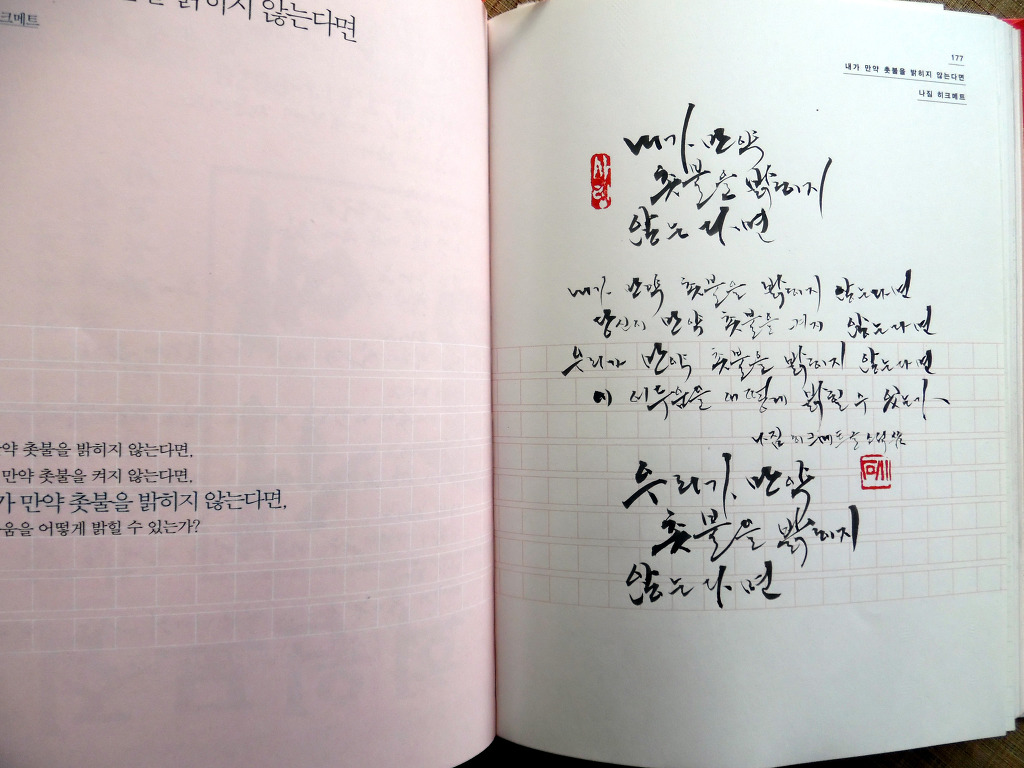 않는다면
크메트
약 촛불을 밝히지 않는다면,
만약 촛불을 켜지 않는다면,
가 만약 촛불을 밝히지 않는다면,
움을 어떻게 밝힐 수 있는가?
177
내가 만약 촛불을 밝히지 않는다면
나짐 히크메트
내가 만약
촛불을 밝히지
않는다면
사랑
내가 만약 촛불을 밝히지 않는다면
당신이 만약 촛불을 켜지 않는다면
우리가 만약 촛불을 밝히지 않는다면
이 어두움을 어떻게 밝힐 수 있는가
나짐 히크메트
우리가 만약
촛불을 밝히지
않는다면